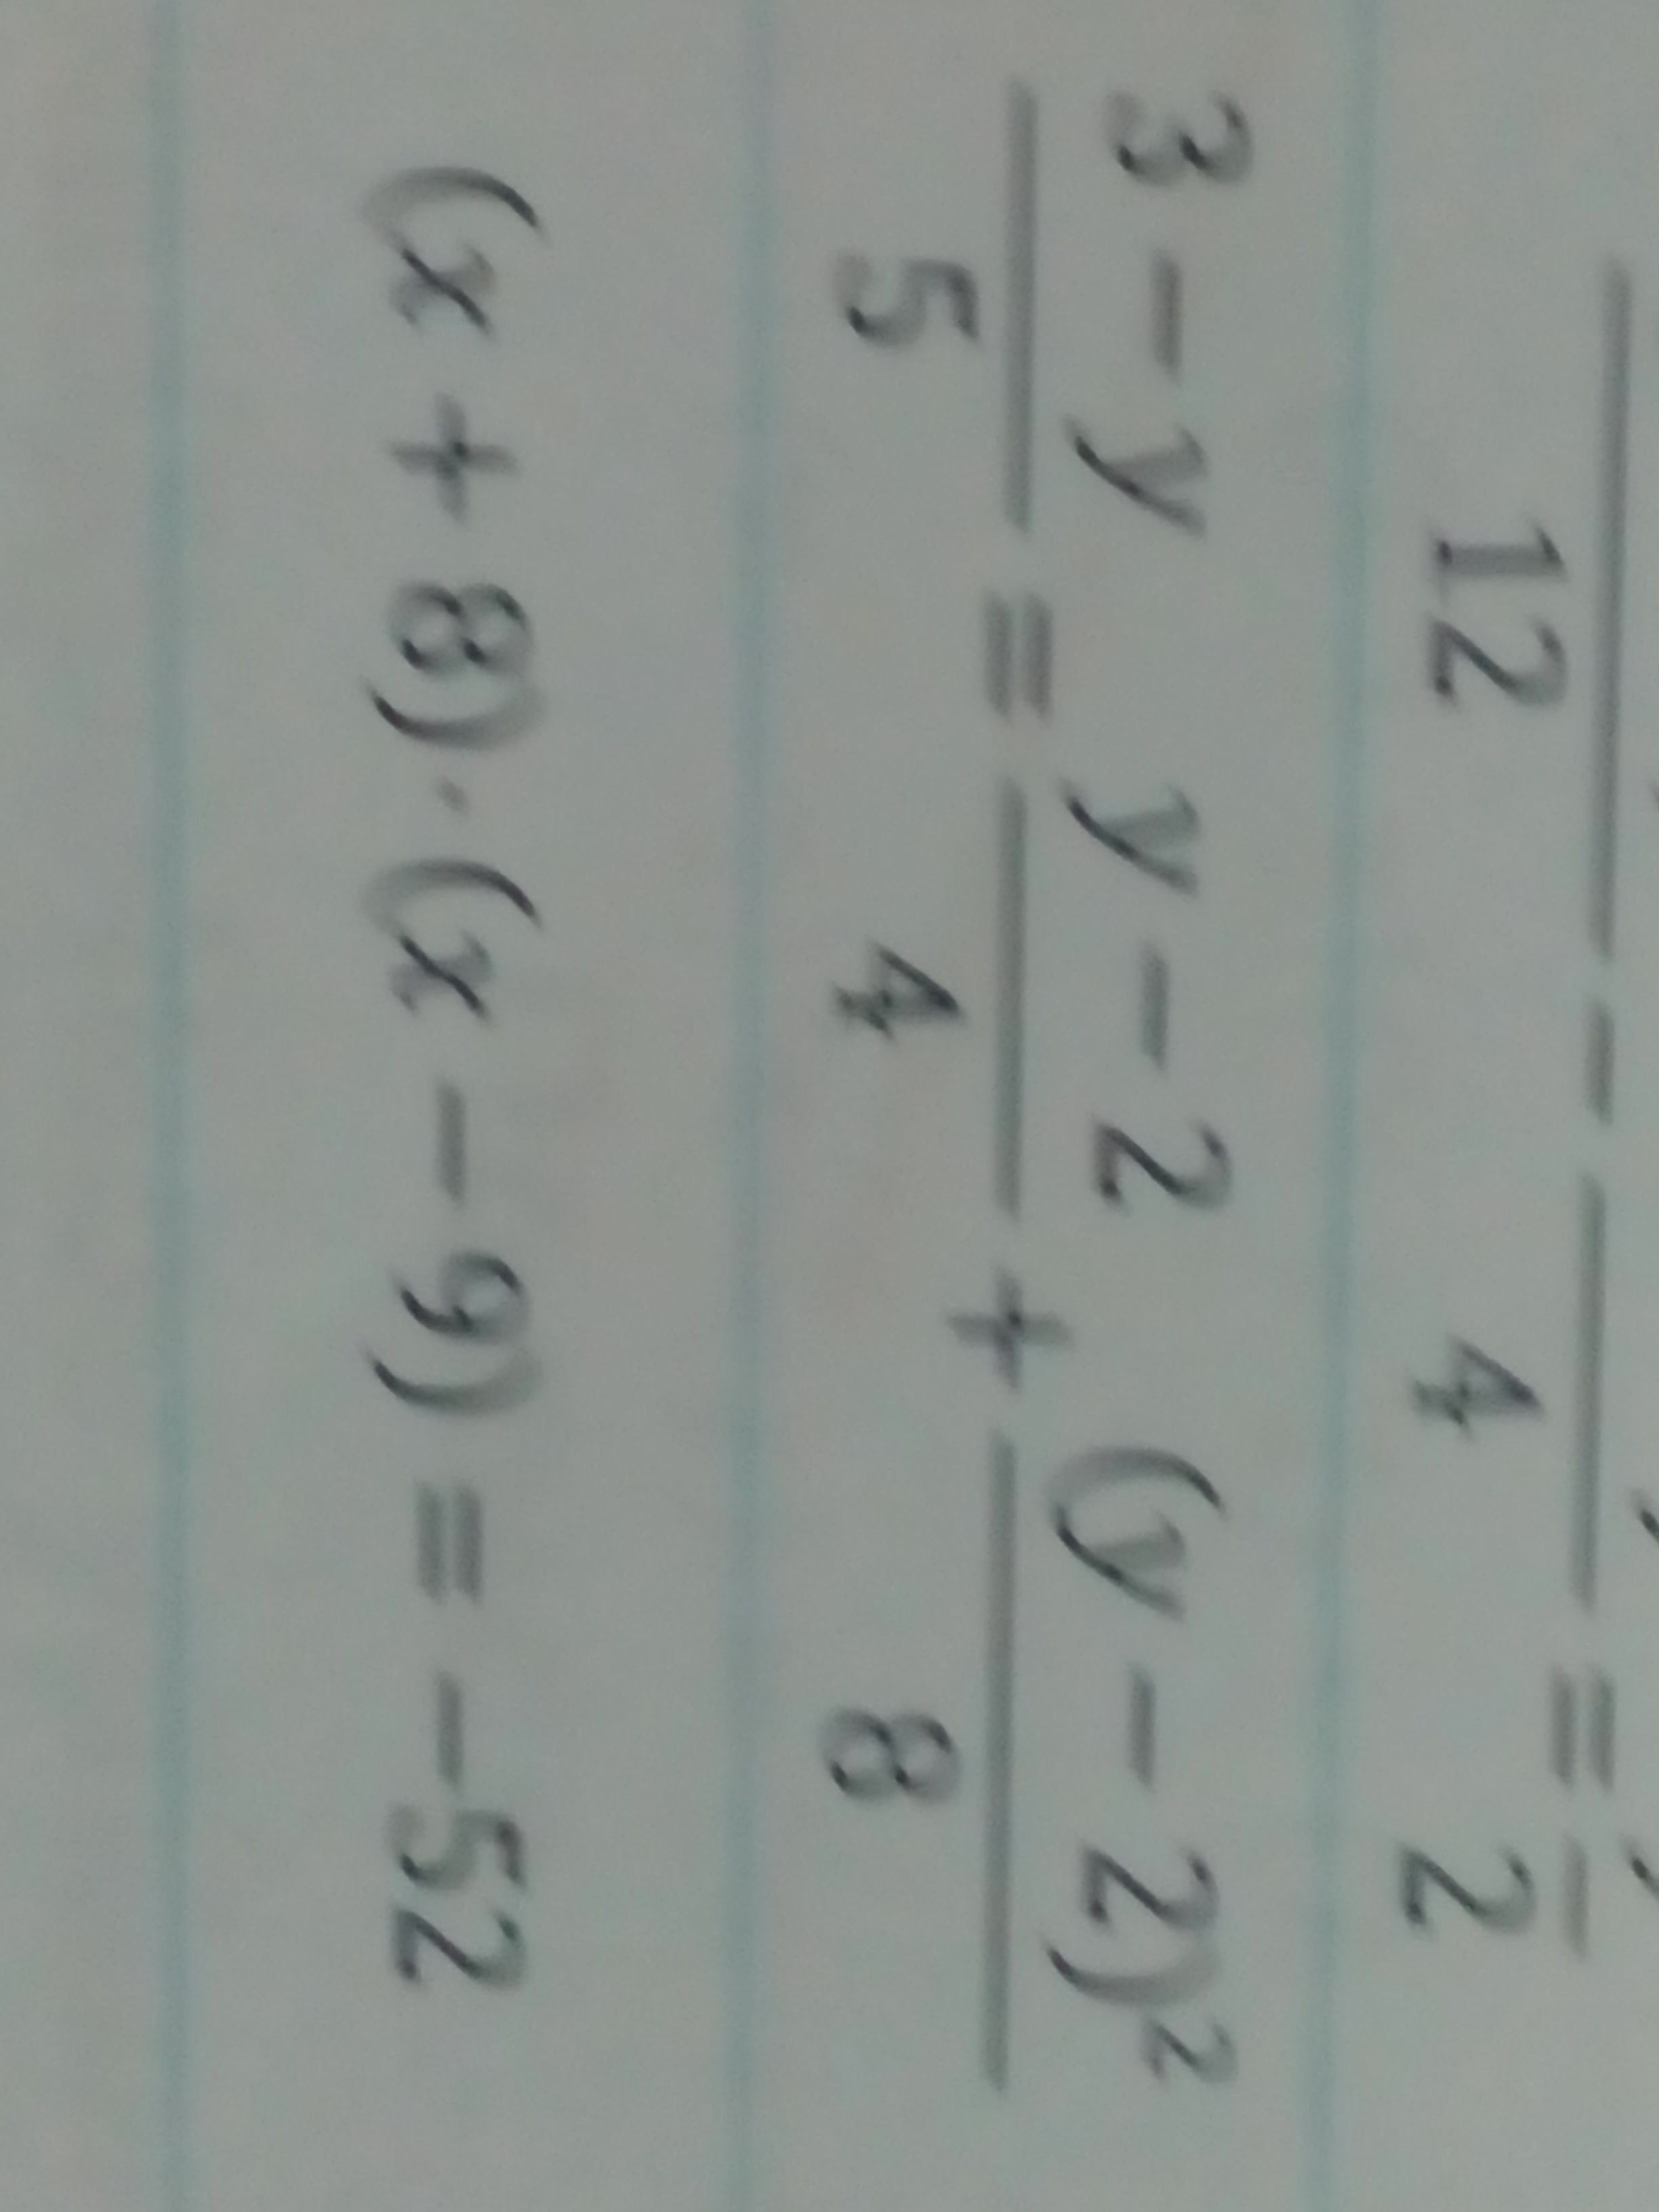 12 4 2
(3 - y)/5 = (y - 2)/4 + (y - 2)²/8
(x + 8) · (x - 9) = -52